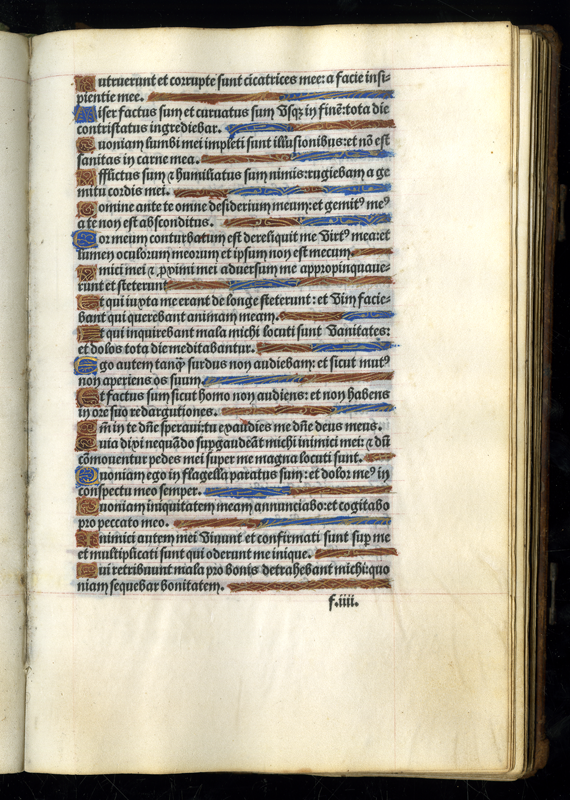 Putruerunt et corrupte sunt cicatrices mee: a facie insi-
pientie mee.
Miser factus sum et curuatus sum vsqꝫ in finē: tota die
contristatus ingrediebar.
Quoniam lumbi mei impleti sunt illusionibus: et nō est
sanitas in carne mea.
Afflictus sum ⁊ humiliatus sum nimis: rugiebam a ge
mitu cordis mei.
Domine ante te omne desiderium meum: et gemitꝰ meꝰ
a te non est absconditus.
Cor meum conturbatum est dereliquit me virtꝰ mea: et
lumen oculorum meorum et ipsum non est mecum.
Amici mei ⁊ proximi mei aduersum me appropinquaue-
runt et steterunt
Et qui iuxta me erant de longe steterunt: et vim facie-
bant qui querebant animam meam.
Et qui inquirebant mala michi locuti sunt vanitates:
et dolos tota die meditabantur.
Ego autem tanqͣ surdus non audiebam: et sicut mutꝰ
non aperiens os suum
Et factus sum sicut homo non audiens: et non habens
in ore suo redargutiones.
in te dn̄e speraui: tu exaudies me dn̄e deus meus.
Quia dixi nequādo supgaudeāt michi inimici mei: ⁊ dū
cōmouentur pedes mei super me magna locuti sunt.
Quoniam ego in flagella paratus sum: et dolor meꝰ in
conspectu meo semper.
Quoniam iniquitatem meam annunciabo: et cogitabo
pro peccato meo.
Inimici autem mei viuunt et confirmati sunt sup me
et multiplicati sunt qui oderunt me inique.
Qui retribuunt mala pro bonis detrahebant michi: quo
niam sequebar bonitatem.
f.iiii.